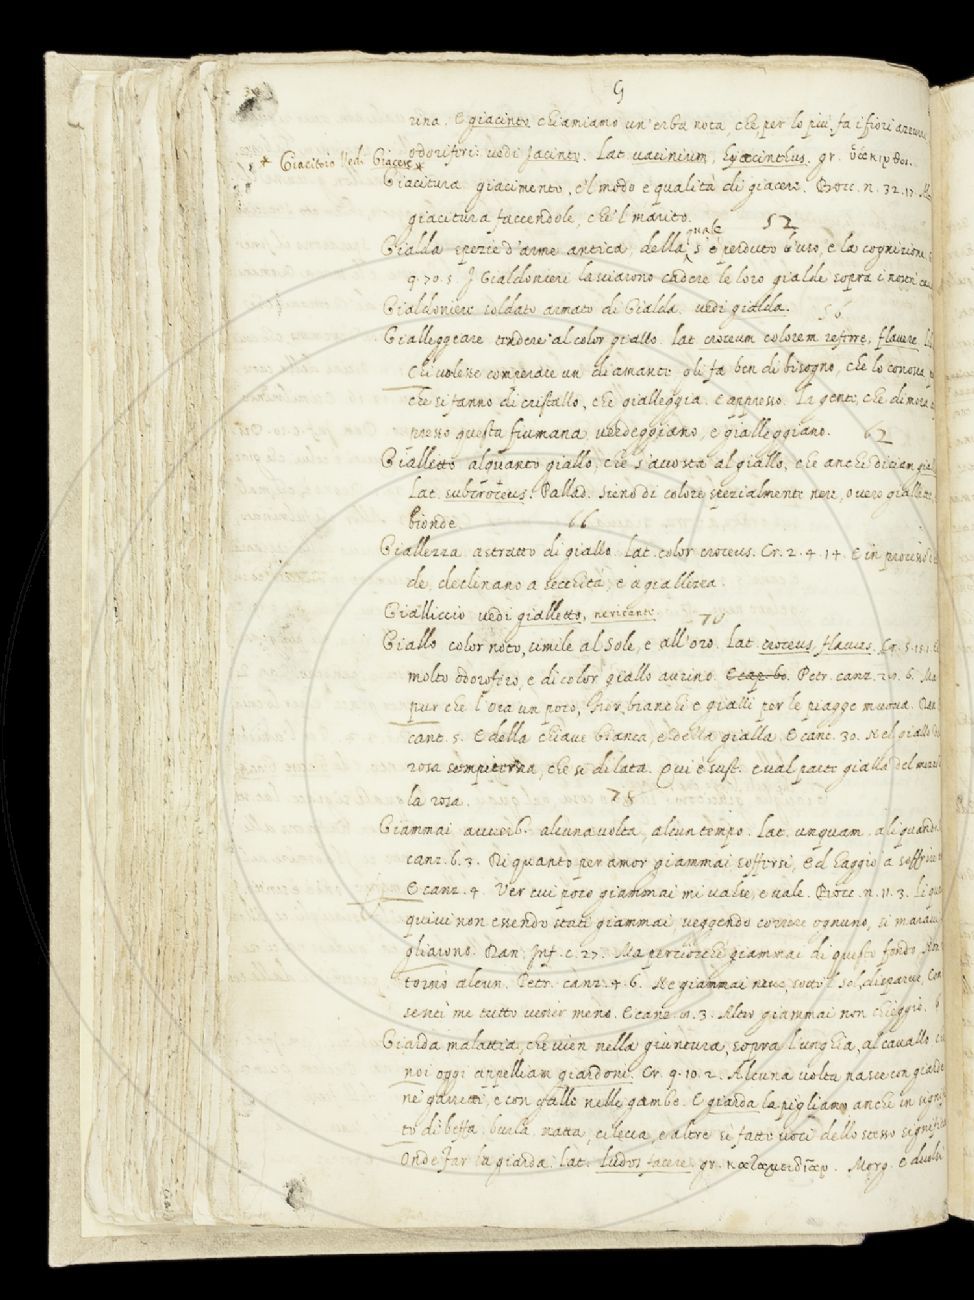 G
rina. E giacinto chiamiamo un'erba nota, che per lo più fa i fiori
odoriferi: vedi Jacinto. Lat. vacinium, hyacinthus. gr.
* Giacitoio Vedi Giacere *
Giacitura giacimento, e'l modo e qualità di giacere. Bocc. n. 32. 17.
giacitura faccendole, che'l marito. 52
Gialda spezie d'arme antica, della quale s'è perduto l'uso, e la cognizione
9. 70. 5. I Gialdonieri lasciarono cadere le loro gialde sopra i nostri
Gialdoniere soldato armato di Gialda. vedi gialda. 56
Gialleggiare tendere al color giallo. Lat. croceum colorem referre, flavere.
Chi volesse comperare un diamante gli fa ben di bisogno, che lo conosca,
che si fanno di cristallo, che gialleggia. E appresso. La gente, che dimora
presso questa fiumana, verdeggiano, e gialleggiano. 62
Gialletto alquanto giallo, che s'accosta al giallo, che anche dician
Lat. subcroceus. Pallad. Sieno di colore spezialmente nere, o vero giallette
bionde. 66
Giallezza astratto di giallo. Lat. color croceus. Cr. 2. 4. 14. E in processo
de, declinano a secchità, e a giallezza.
Gialliccio vedi gialletto, nericante. 70
Giallo color noto, simile al Sole, e all'oro. Lat. croceus, flavus. Cr. 5. 15. 1.
molto odorifero, e di color giallo aurino. E cap. 60. Petr. canz. 29. 6. Ma
pur che l'ora un poco, Fior bianchi e gialli per le piagge mova. Dan.
cant. 5. E della chiave bianca, e della gialla. E cant. 30. Nel giallo
rosa sempiterna, che si dilata. Qui è sust. e val parte gialla del
la rosa. 78
Giammai avverb. alcuna volta, alcun tempo. Lat. unquam. aliquando.
canz. 6. 3. Di quanto per amor giammai soffersi, Ed haggio a soffrire
E canz. 4. Ver cui poco giammai mi valse, e vale. Bocc. n. 11. 3. Li
quivi non essendo stati giammai, veggendo correre ognuno, si maravi
gliarono. Dan. Inf. c. 27. Ma perciocchè giammai di questo fondo, Non
tornò alcun. Petr. canz. 4. 6. Ne giammai neve, sotto'l Sol, disparve, Com
sentì me tutto venir meno. E canz. 3. Altro giammai non chieggio.
Giarda malattia, che vien nella giuntura, sopra l'unghia, al cavallo
noi oggi appelliam giardoni. Cr. 9. 10. 2. Alcuna volta nasce con giarde
ne' garretti, e con galle nelle gambe. E giarda la pigliamo anche in signi
to di beffa. burla. natta, cilecca, e altre sì fatte voci dello stesso significa
Onde Far la giarda. Lat. ludos facere. gr. Morg. E